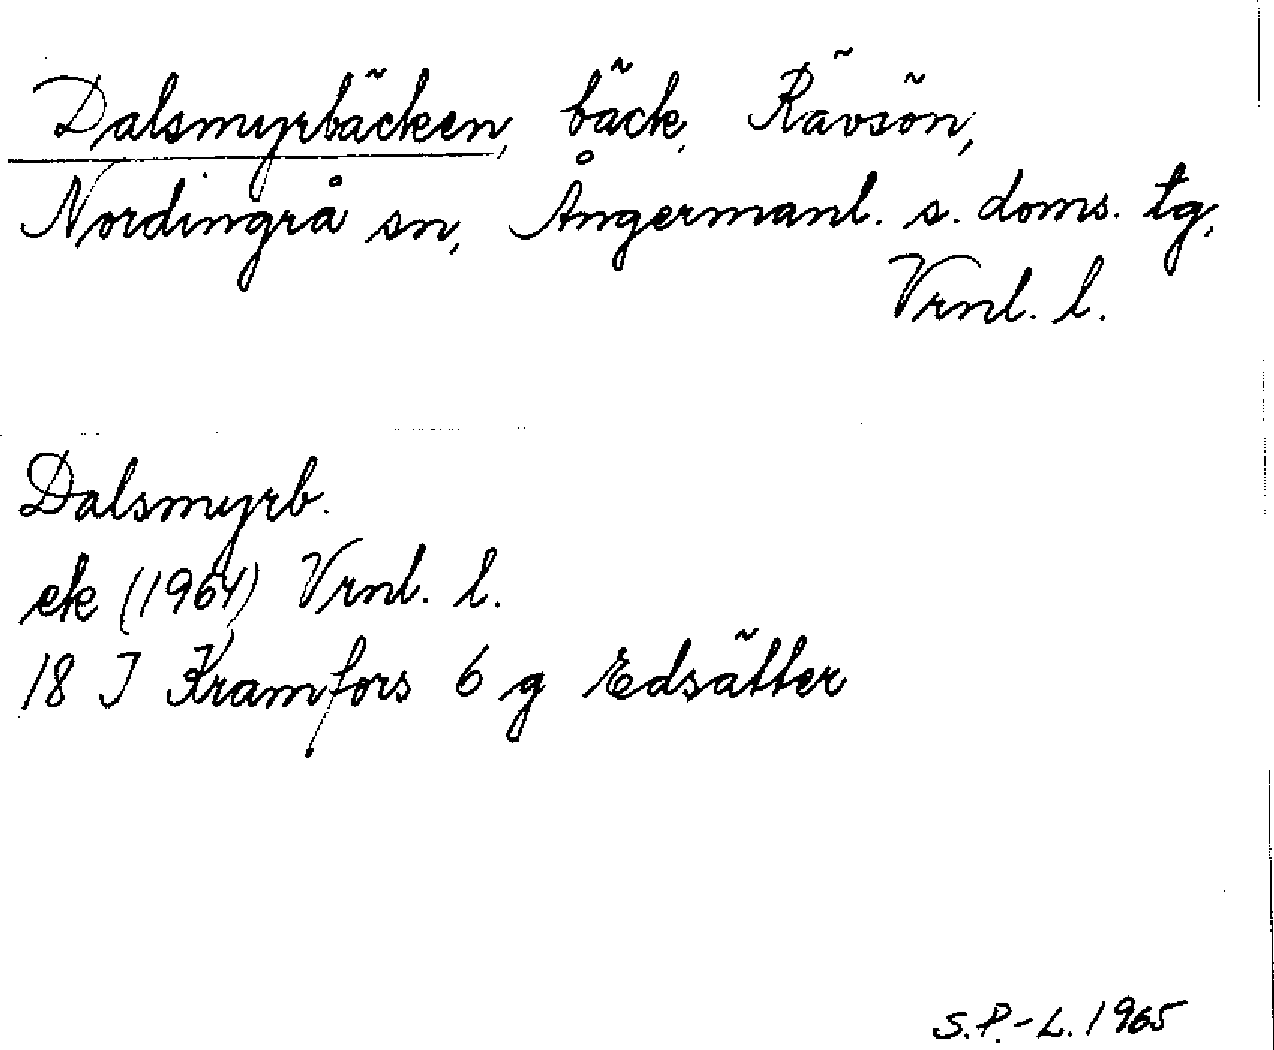 Dalsmyrbäcken, bäck, Rävsön,
Nordingrå sn, Ångermanl. s. doms. tg,
Vrnl. l.
Dalsmyrb.
ek (1964) Vrnl. l.
18 I Kramfors 6 g Edsätter
S.P.-L. 1965